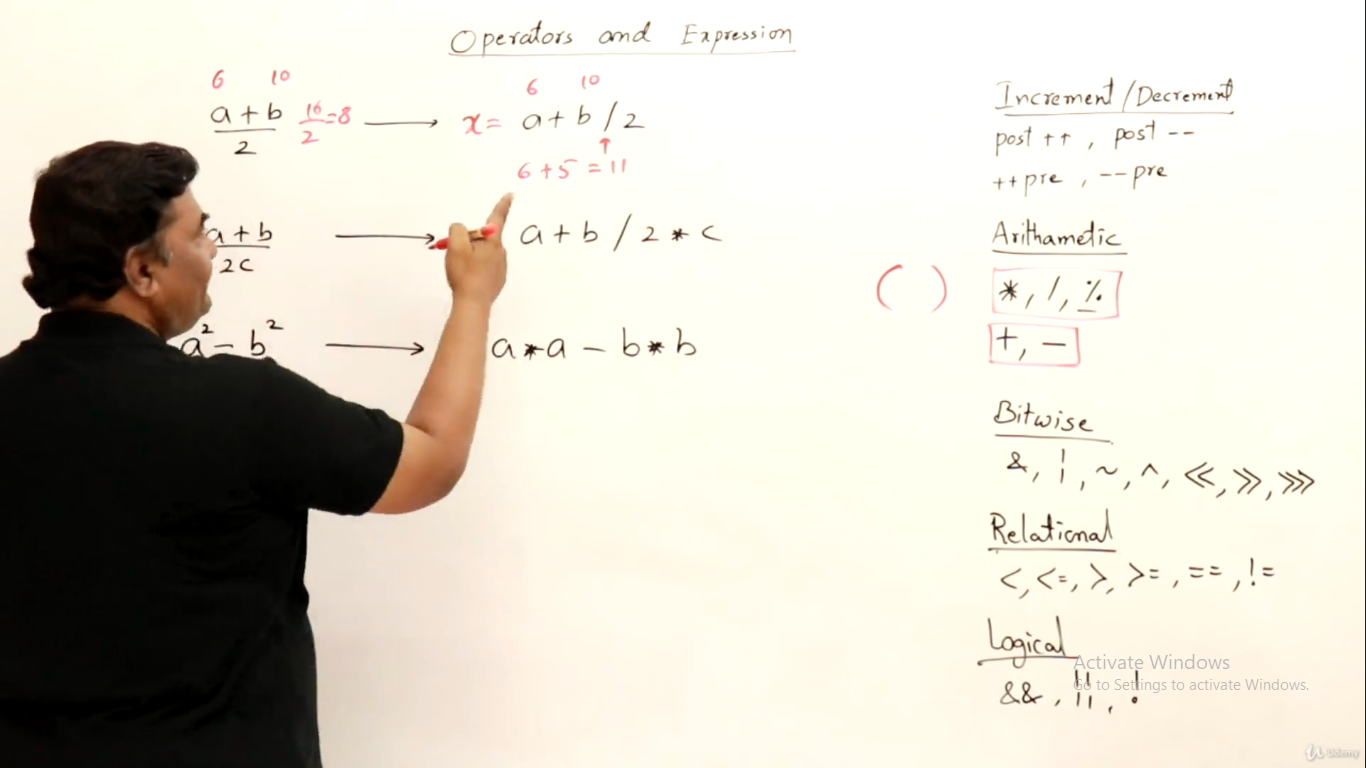 Operators and Expression
6 10
a + b 16/2 = 8
2
6 10
x = a + b / 2
↑
6 + 5 = 11
a + b
2c
a + b / 2 * c
a² - b²
a * a - b * b
( )
Increment / Decrement
post ++ , post --
++pre , --pre
Arithametic
*, /, %
+, -
Bitwise
&, |, ~, ^, <<, >>, >>>
Relational
<, <=, >, >=, ==, !=
Logical
&&, ||, !
Activate Windows
Go to Settings to activate Windows.
Udemy